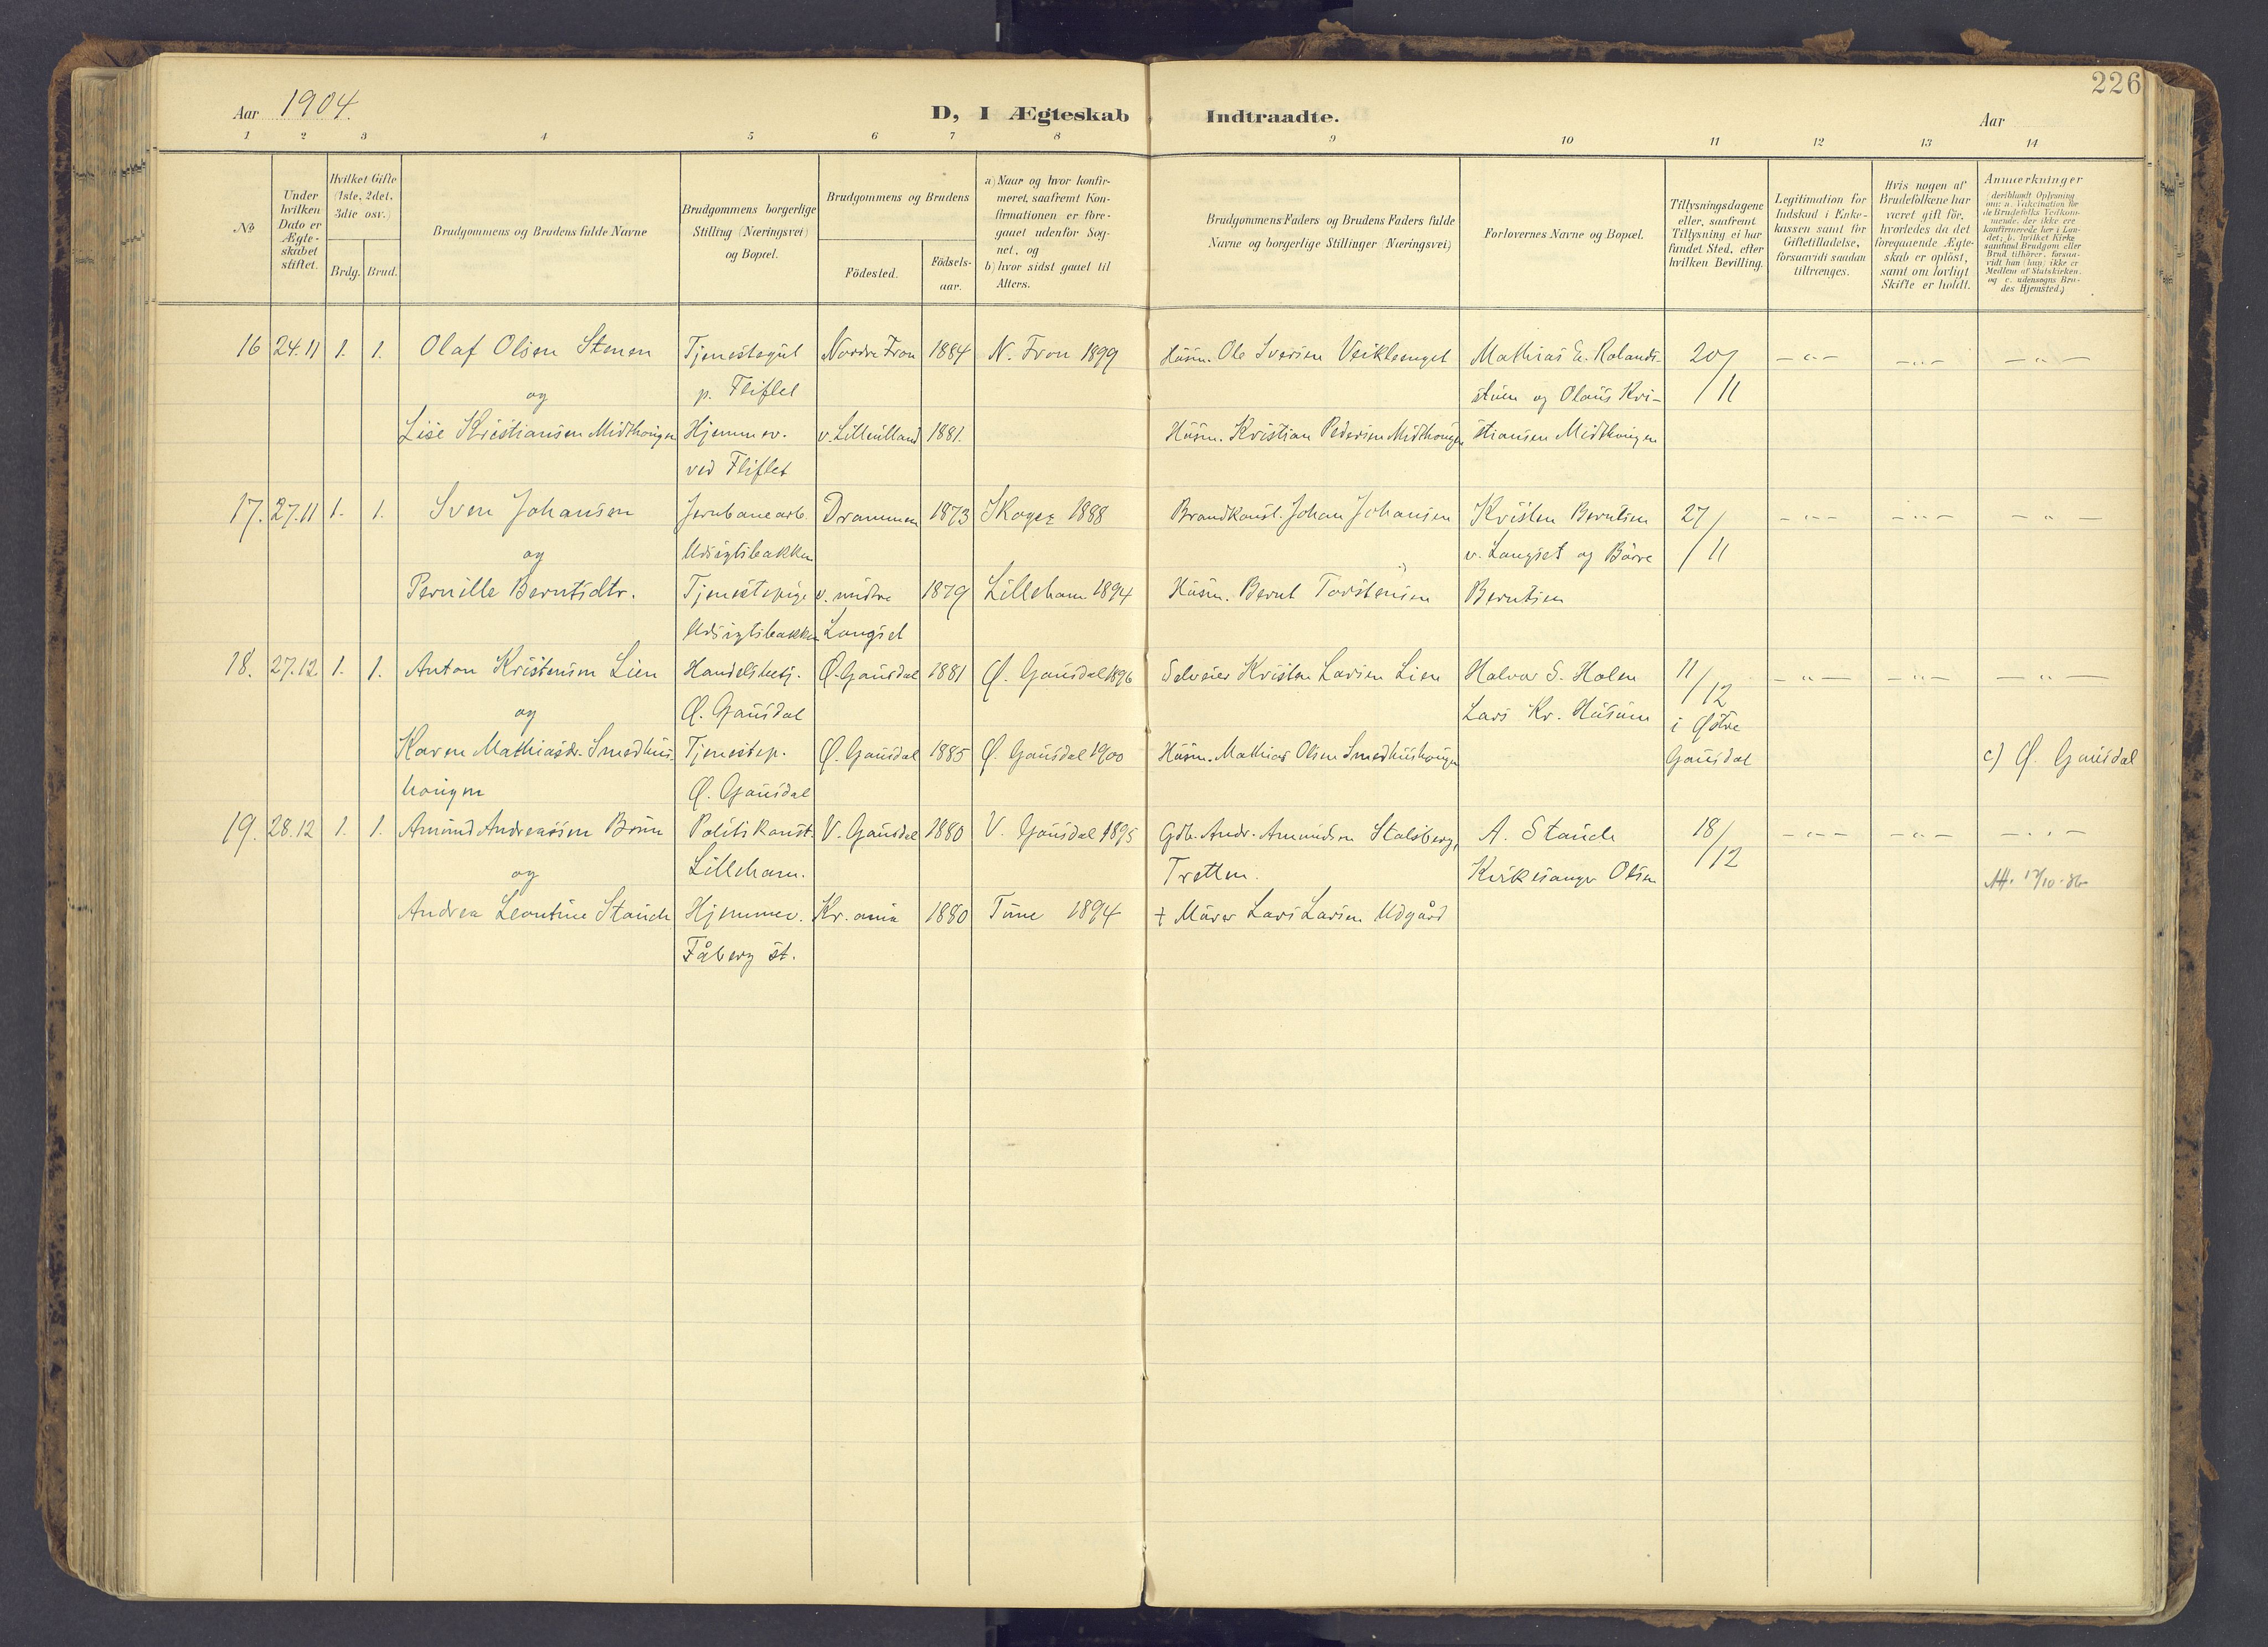 226
Aar 1904.
D, I Ægteskab Indtraadte.
Aar
1 2 3 4 5 6 7 8 9 10 11 12 13 14
No
Under hvilken Dato er Ægteskabet stiftet.
Hvilket Gifte (1ste, 2det, 3die osv.)
Brdg. Brud.
Brudgommens og Brudens fulde Navne
Brudgommens borgerlige Stilling (Næringsvei) og Bopæl.
Brudgommens og Brudens
Födested.
Födselsaar.
a) Naar og hvor konfirmeret, saafremt Konfirmationen er foregaaet udenfor Sognet, og
b) hvor sidst gaaet til Alters.
Brudgommens Faders og Brudens Faders fulde Navne og borgerlige Stillinger (Næringsvei)
Forlovernes Navne og Bopæl.
Tillysningsdagene eller, saafremt Tillysning ei har fundet Sted, efter hvilken Bevilling.
Legitimation for Indskud i Enkekassen samt for Giftetilladelse, forsaavidt saadan tiltrænges.
Hvis nogen af Brudefolkene har været gift för, hvorledes da det foregaaende Ægteskab er oplöst, samt om lovligt Skifte er holdt.
Anmærkninger
(deriblandt Oplysning om: a. Vakcination for de Brudefolks Vedkommende, der ikke ere konfirmerede her i Landet; b. hvilket Kirkesamfund Brudgom eller Brud tilhörer, forsaavidt han (hun) ikke er Medlem af Statskirken, og c. udensogns Brudes Hjemsted.)
16 24.11 1. 1. Olaf Olsen Stenen Tjenestegut Nordre Fron 1884 N. Fron 1899 Husm. Ole Iversen Veiklenget Mathias E. Rolands- 20/ -"- -"- -"-
og p. Fliflet stuen og Olaus Kri- /11
Lise Kristiansen Midthaugen Hjemmev. v. Lillehilland 1881. Husm. Kristian Pedersen Midthaugen stiansen Midthaugen
ved Fliflet
17. 27.11 1. 1. Sven Johansen Jernbanearb. Drammen 1873 Skoger 1888 Brandkonst. Johan Johansen Kristen Berntsen 27/ -"- -"- -"-
og Udsigtsbakken v. Langset og Börre /11
Pernille Berntsdtr. Tjenestepige v. nistre 1879 Lilleham 1894 Husm. Bernt Torstensen Berntsen
Udsigtsbakken Langset
18. 27.12 1. 1. Anton Kristensen Lien Handelsbetj. Ø. Gausdal 1881 Ø. Gausdal 1896 Selveier Kristen Larsen Lien Halvor S. Holen 11/ -"- -"- -"-
og Ø. Gausdal Lars Kr. Husum /12 i Østre
Karen Mathiasdr. Smedhus- Tjenestep. Ø. Gausdal 1885 Ø. Gausdal 1900 Husm. Mathias Olsen Smedhushaugen Gausdal c) Ø. Gausdal
haugen Ø. Gausdal
19. 28.12 1. 1. Amund Andreassen Bruun Politikonst. V. Gausdal 1880 V. Gausdal 1895 Gdb. Andr. Amundsen Stalsberg, A. Staude 18/ -"- -"- -"-
og Lilleham. Tretten. Kirkesanger Olsen /12
Andrea Leontine Staude Hjemmev. Kr.ania 1880 Tune 1894 + Murer Lars Larsen Udgård
Fåberg st.